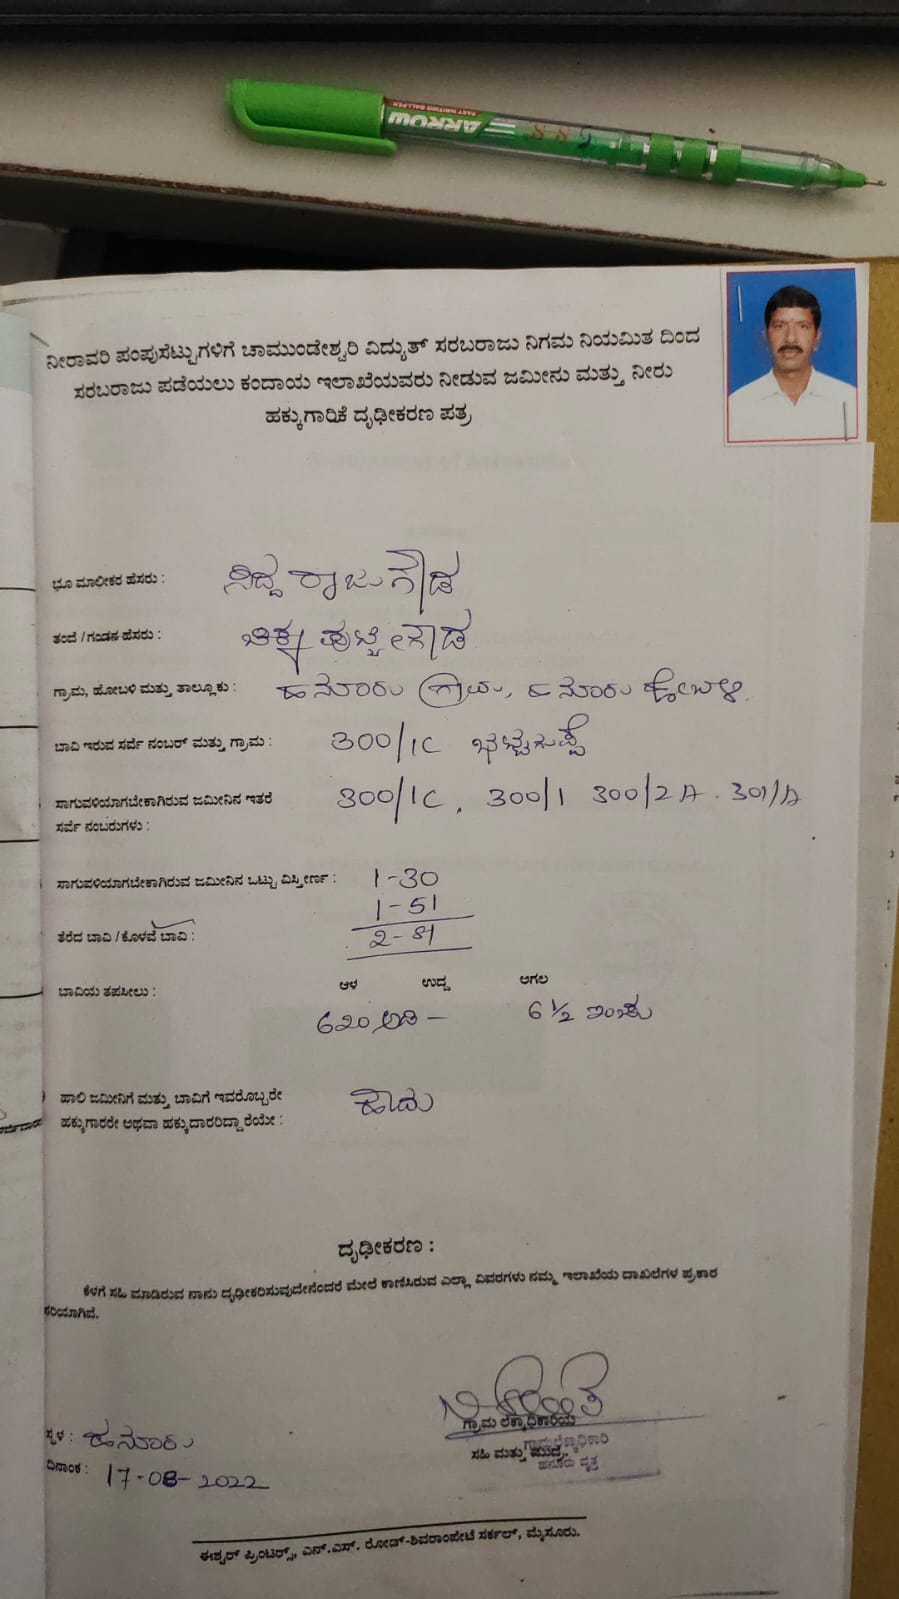 ARROW
FAST WRITING BALLPEN
ನೀರಾವರಿ ಪಂಪುಸೆಟ್ಟುಗಳಿಗೆ ಚಾಮುಂಡೇಶ್ವರಿ ವಿದ್ಯುತ್ ಸರಬರಾಜು ನಿಗಮ ನಿಯಮಿತ ದಿಂದ
ಸರಬರಾಜು ಪಡೆಯಲು ಕಂದಾಯ ಇಲಾಖೆಯವರು ನೀಡುವ ಜಮೀನು ಮತ್ತು ನೀರು
ಹಕ್ಕುಗಾರಿಕೆ ದೃಢೀಕರಣ ಪತ್ರ
ಭೂ ಮಾಲೀಕರ ಹೆಸರು : ಸಿದ್ದರಾಜುಗೌಡ
ತಂದೆ / ಗಂಡನ ಹೆಸರು : ಚಿಕ್ಕಪುಟ್ಟೇಗೌಡ
ಗ್ರಾಮ, ಹೋಬಳಿ ಮತ್ತು ತಾಲ್ಲೂಕು : ಹನೂರು ಗ್ರಾಮ, ಹನೂರು ಹೋಬಳಿ
ಬಾವಿ ಇರುವ ಸರ್ವೆ ನಂಬರ್ ಮತ್ತು ಗ್ರಾಮ : 300/1C
ಸಾಗುವಳಿಯಾಗಬೇಕಾಗಿರುವ ಜಮೀನಿನ ಇತರೆ 300/1C, 300/1 300/2A. 301/A
ಸರ್ವೆ ನಂಬರುಗಳು :
ಸಾಗುವಳಿಯಾಗಬೇಕಾಗಿರುವ ಜಮೀನಿನ ಒಟ್ಟು ವಿಸ್ತೀರ್ಣ : 1-30
1-51
ತೆರೆದ ಬಾವಿ / ಕೊಳವೆ ಬಾವಿ : 2-81
ಬಾವಿಯ ತಪಸೀಲು : ಆಳ ಉದ್ದ ಅಗಲ
620 ಅಡಿ – 6 1/2 ಇಂಚು
ಹಾಲಿ ಜಮೀನಿಗೆ ಮತ್ತು ಬಾವಿಗೆ ಇವರೊಬ್ಬರೇ ಹೌದು
ಹಕ್ಕುಗಾರರೇ ಅಥವಾ ಹಕ್ಕುದಾರರಿದ್ದಾರೆಯೇ :
ದೃಢೀಕರಣ :
ಕೆಳಗೆ ಸಹಿ ಮಾಡಿರುವ ನಾನು ದೃಢೀಕರಿಸುವುದೇನೆಂದರೆ ಮೇಲೆ ಕಾಣಿಸಿರುವ ಎಲ್ಲಾ ವಿವರಗಳು ನಮ್ಮ ಇಲಾಖೆಯ ದಾಖಲೆಗಳ ಪ್ರಕಾರ
ಸರಿಯಾಗಿವೆ.
ಗ್ರಾಮ ಲೆಕ್ಕಾಧಿಕಾರಿಯ
ಸ್ಥಳ : ಹನೂರು
ಗ್ರಾಮಲೆಕ್ಕಾಧಿಕಾರಿ
ಸಹಿ ಮತ್ತು ಮುದ್ರೆ.
ಹನೂರು ವೃತ್ತ
ದಿನಾಂಕ : 17-08-2022
ಈಶ್ವರ್ ಪ್ರಿಂಟರ್ಸ್, ಎನ್.ಎಸ್. ರೋಡ್-ಶಿವರಾಂಪೇಟೆ ಸರ್ಕಲ್, ಮೈಸೂರು.